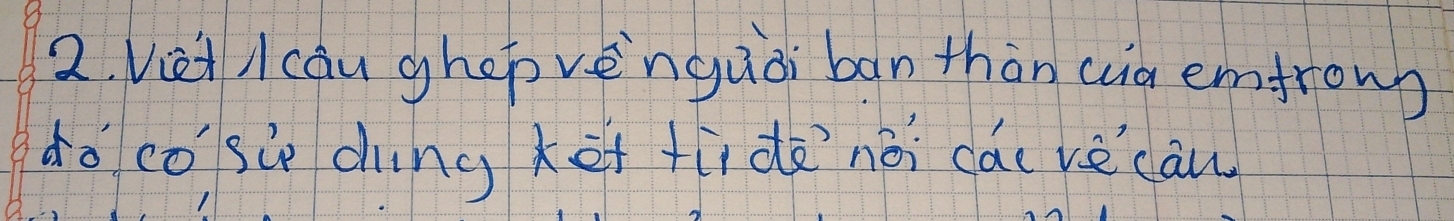 2. Viết 1 câu ghép về người bạn thân của em trong
đó có sử dụng kết từ để nối các vế câu.